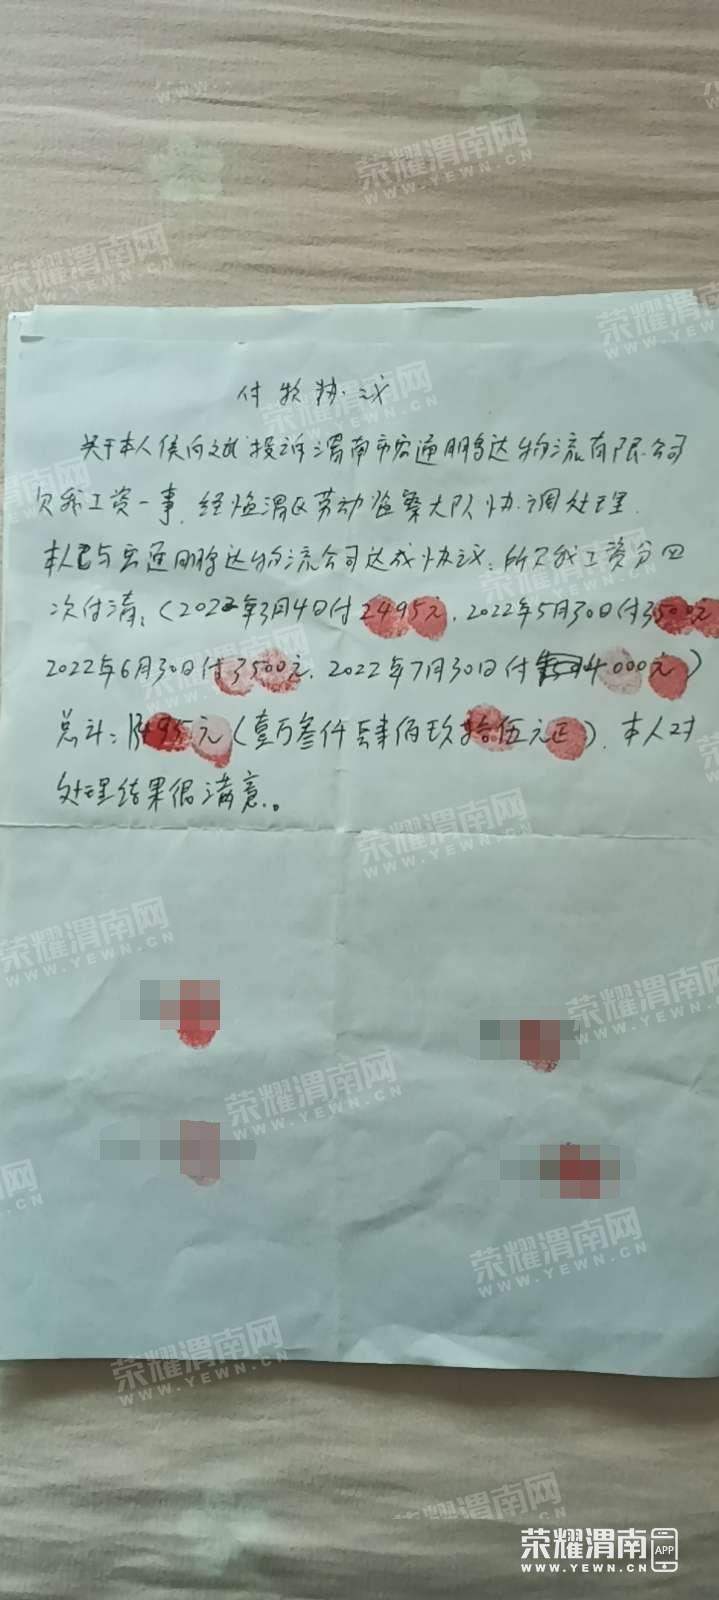 荣耀渭南网
WWW.YEWN.CN
付款协议
关于本人侯向斌投诉渭南市宏通鹏达物流有限公司
欠我工资一事,经临渭区劳动监察大队协调处理.
本人已与宏通鹏达物流公司达成协议:所欠我工资分四
次付清:(2022年3月4日付2495元.2022年5月30日付3500元
2022年6月30日付3500元.2022年7月30日付4000元)
总计:13495元(壹万叁仟肆佰玖拾伍元正).本人对
处理结果很满意.。
荣耀渭南
APP